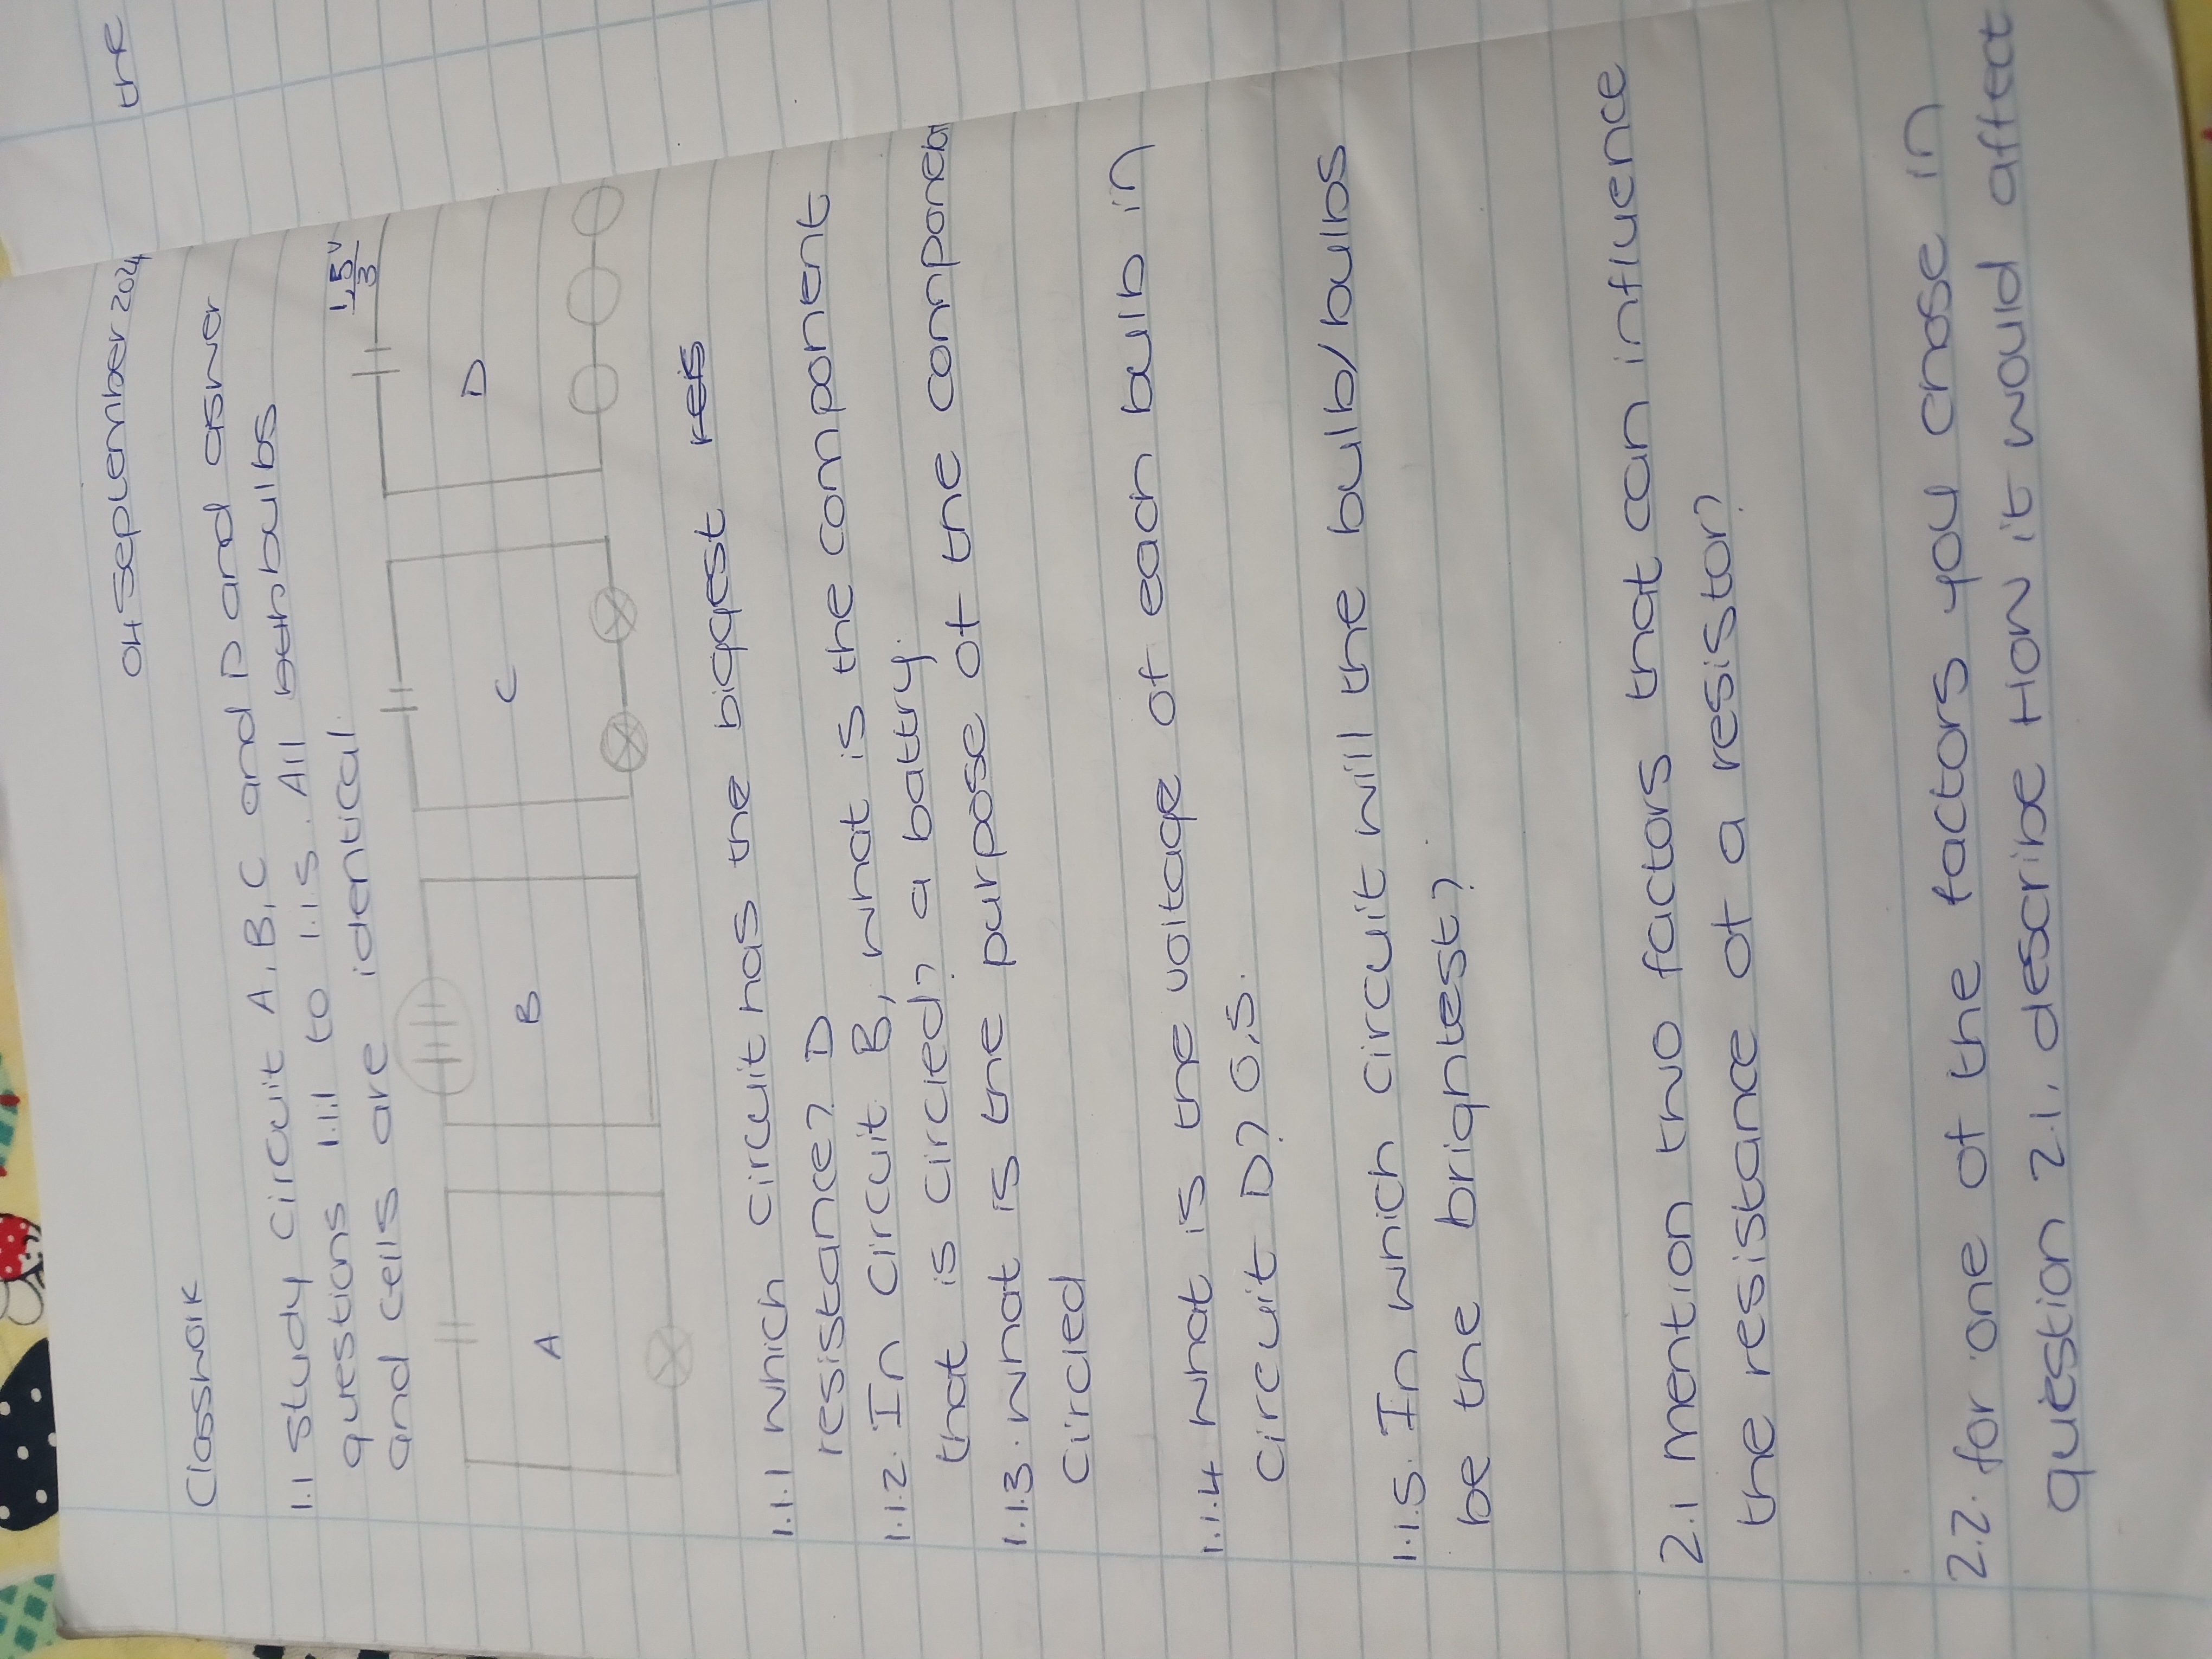 04 September 2024
the
Classwork
1.1 Study circuit A, B, C and D and aswer
questions 1.1.1 to 1.1.5. All bulbs
and cells are identical.
1,5 V
3
A
B
C
D
1.1.1 Which circuit has the biggest reis
resistance? D
1.1.2. In circuit B, what is the component
that is circled? a battry.
1.1.3. What is the purpose of the component
circled
1.1.4 What is the voltage of each bulb in
circuit D? 0,5.
1.1.5. In which circuit will the bulb/bulbs
be the brightest?
2.1 Mention two factors that can influence
the resistance of a resistor?
2.2. for one of the factors you chose in
question 2.1, describe How it would affect